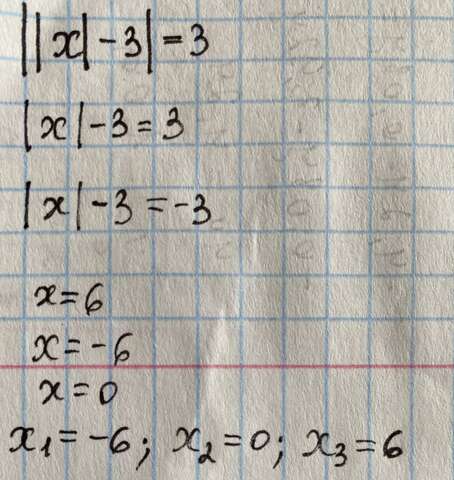 ||x|-3|=3
|x|-3=3
|x|-3=-3
x=6
x=-6
x=0
x₁=-6; x₂=0; x₃=6